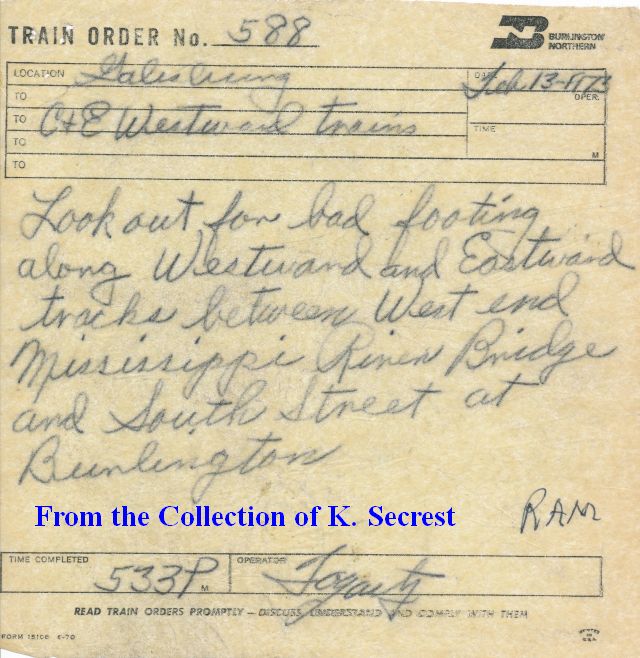 TRAIN ORDER No. 588
BURLINGTON
NORTHERN
LOCATION Galesburg
DATE Feb 13-1973
TO
OPER.
TO C+E Westward trains
TIME
TO
M
TO
Look out for bad footing
along Westward and Eastward
tracks between West end
Mississippi River Bridge
and South Street at
Burlington
From the Collection of K. Secrest
RAM
TIME COMPLETED 533P M
OPERATOR Fogarty
READ TRAIN ORDERS PROMPTLY – DISCUSS, UNDERSTAND AND COMPLY WITH THEM
FORM 15106 6-70
PRINTED
IN
U.S.A.